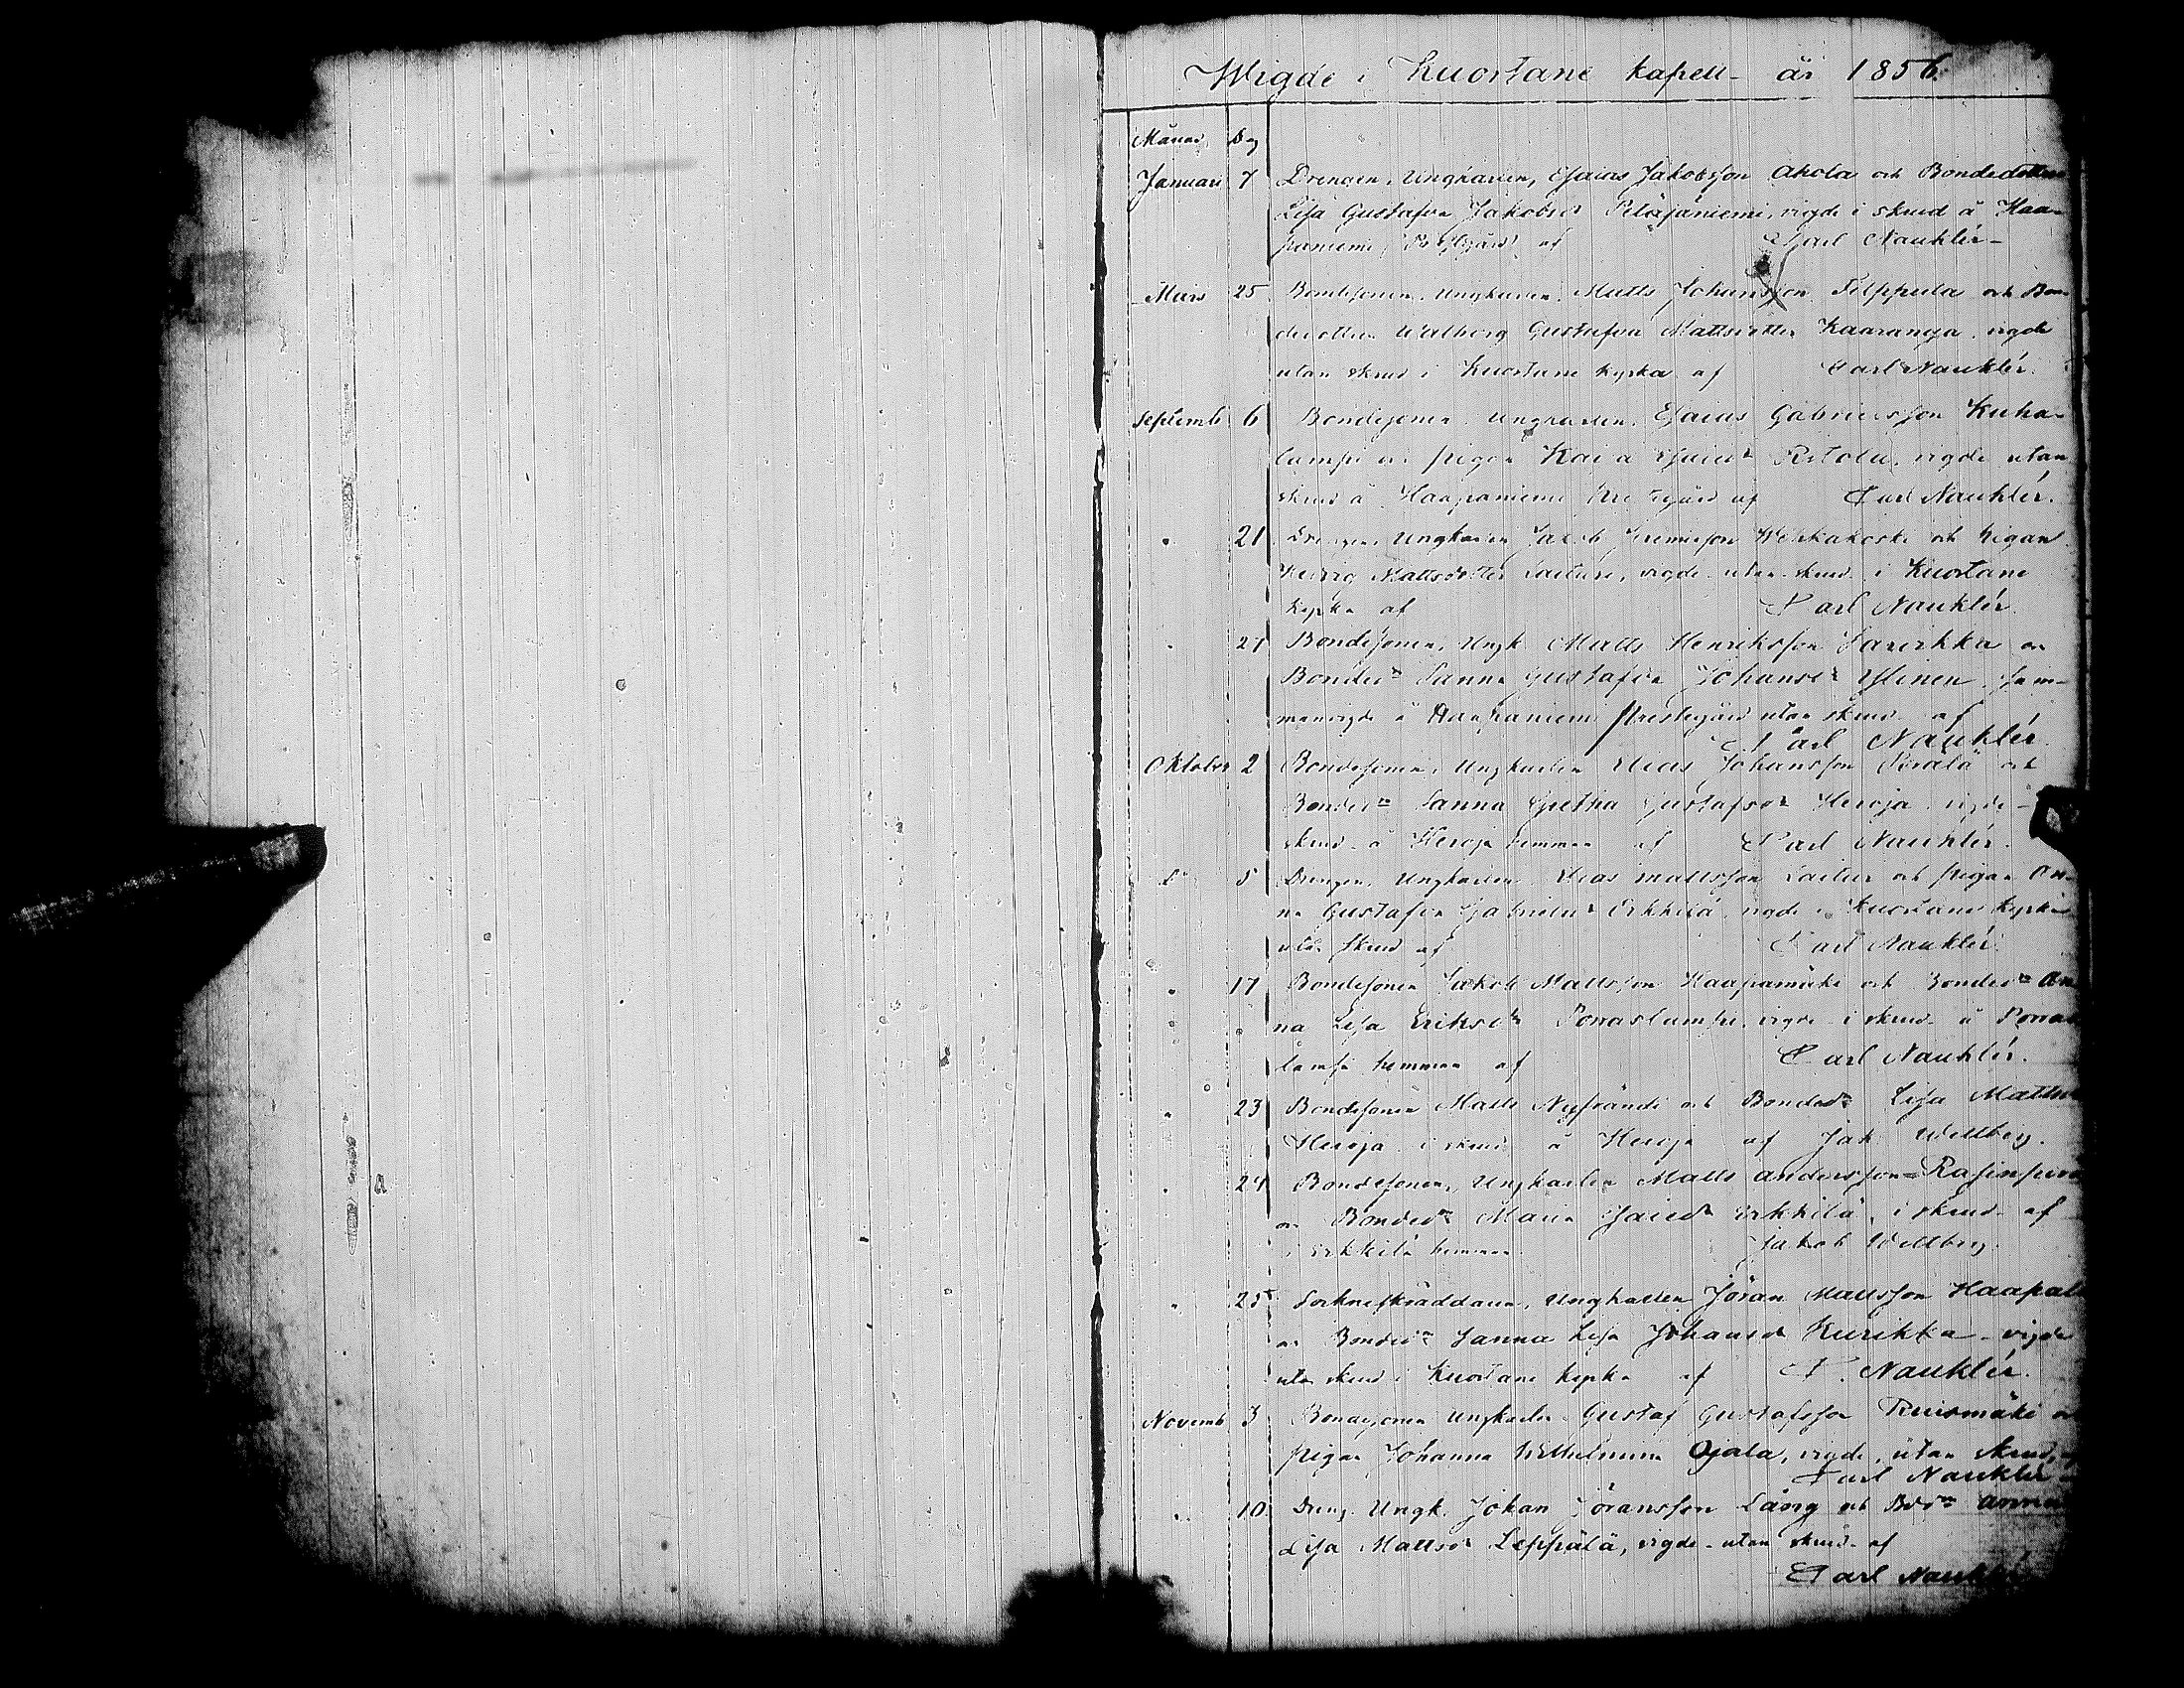 Wigde i Kuortane kapell år 1856.
Månad Dag
Januari 7 Drengen, Ungkarlen, Esaias Jakobsson Ahola och Bondedottren
Lisa Gustafva Jakobsdr Petäjäniemi, vigde i skrud å Haa-
paniemi Prestgård af Carl Nauklér
Mars 25 Bondesonen, Ungkarlen, Matts Johansson Filppula och Bon-
dedottren Walborg Gustafva Mattsdotter Kaaranoja, vigde
utan skrud i Kuortane kyrka af Carl Nauklér.
Septemb 6 Bondesonen, Ungkarlen, Esaias Gabrielsson Kuha-
lampi och pigan Kaisa Esaiedr Ristola, vigde utan
skrud å Haapaniemi Prestegård af Carl Nauklér.
" 21 Drengen, Ungkarlen Jacob Jeremiesson och Pigan
Hedvig Mattsdotter Laituri, vigde utan skrud i Kuortane
kyrka af Carl Nauklér.
" 27 Bondesonen, Ungk. Matts Henriksson och
Bondedr Sanna Gustafva Johansdr Ylinen, sam-
manvigde å Haapaniemi Prestegård utan skrud af
Carl Nauklér.
Oktober 2 Bondesonen, Ungkarlen Elias Johansson och
Bondedr Sanna Gretha Gustafsdr Heroja, vigde i
skrud å Heroja hemman af Carl Nauklér.
Do 5 Drengen, Ungkarlen Elias Mattsson Laituri och pigan An-
na Gustafva Gabrielsdr Erkkilä, vigde i Kuortane kyrka
utan skrud af Carl Nauklér.
" 17 Bondesonen Jakob Mattsson Haapamäki och Bondedr An-
na Lisa Eriksdr Porraslampi, vigde i skrud å Porras-
lampi hemman af Carl Nauklér.
" 23 Bondesonen Matts Nyfrändi och Bondedr Lisa Mattsdr
Heroja i skrud å Heroja af Jak. Wellberg.
" 24 Bondesonen, Ungkarlen Matts Andersson
och Bondedr Maria Esaiedr Erkkilä, i skrud af
i Erkkilä hemman. Jakob Wellberg.
" 25 Sockneskräddaren, Ungkarlen Jöran Mattsson Haapala
och Bondedr Sanna Lisa Johansdr Kurikka, vigde
utan skrud i Kuortane kyrka af C. Nauklér.
Novemb 3 Bondesonen Ungkarlen Gustaf Gustafsson Ruismäki och
pigan Johanna Wilhelmina Ojala, vigde, utan skrud, af
Carl Nauklér
" 10 Dreng. Ungk. Johan Joransson Lång och Bddr Anna
Lisa Mattsdr Leppälä, vigde utan skrud af
Carl Nauklér